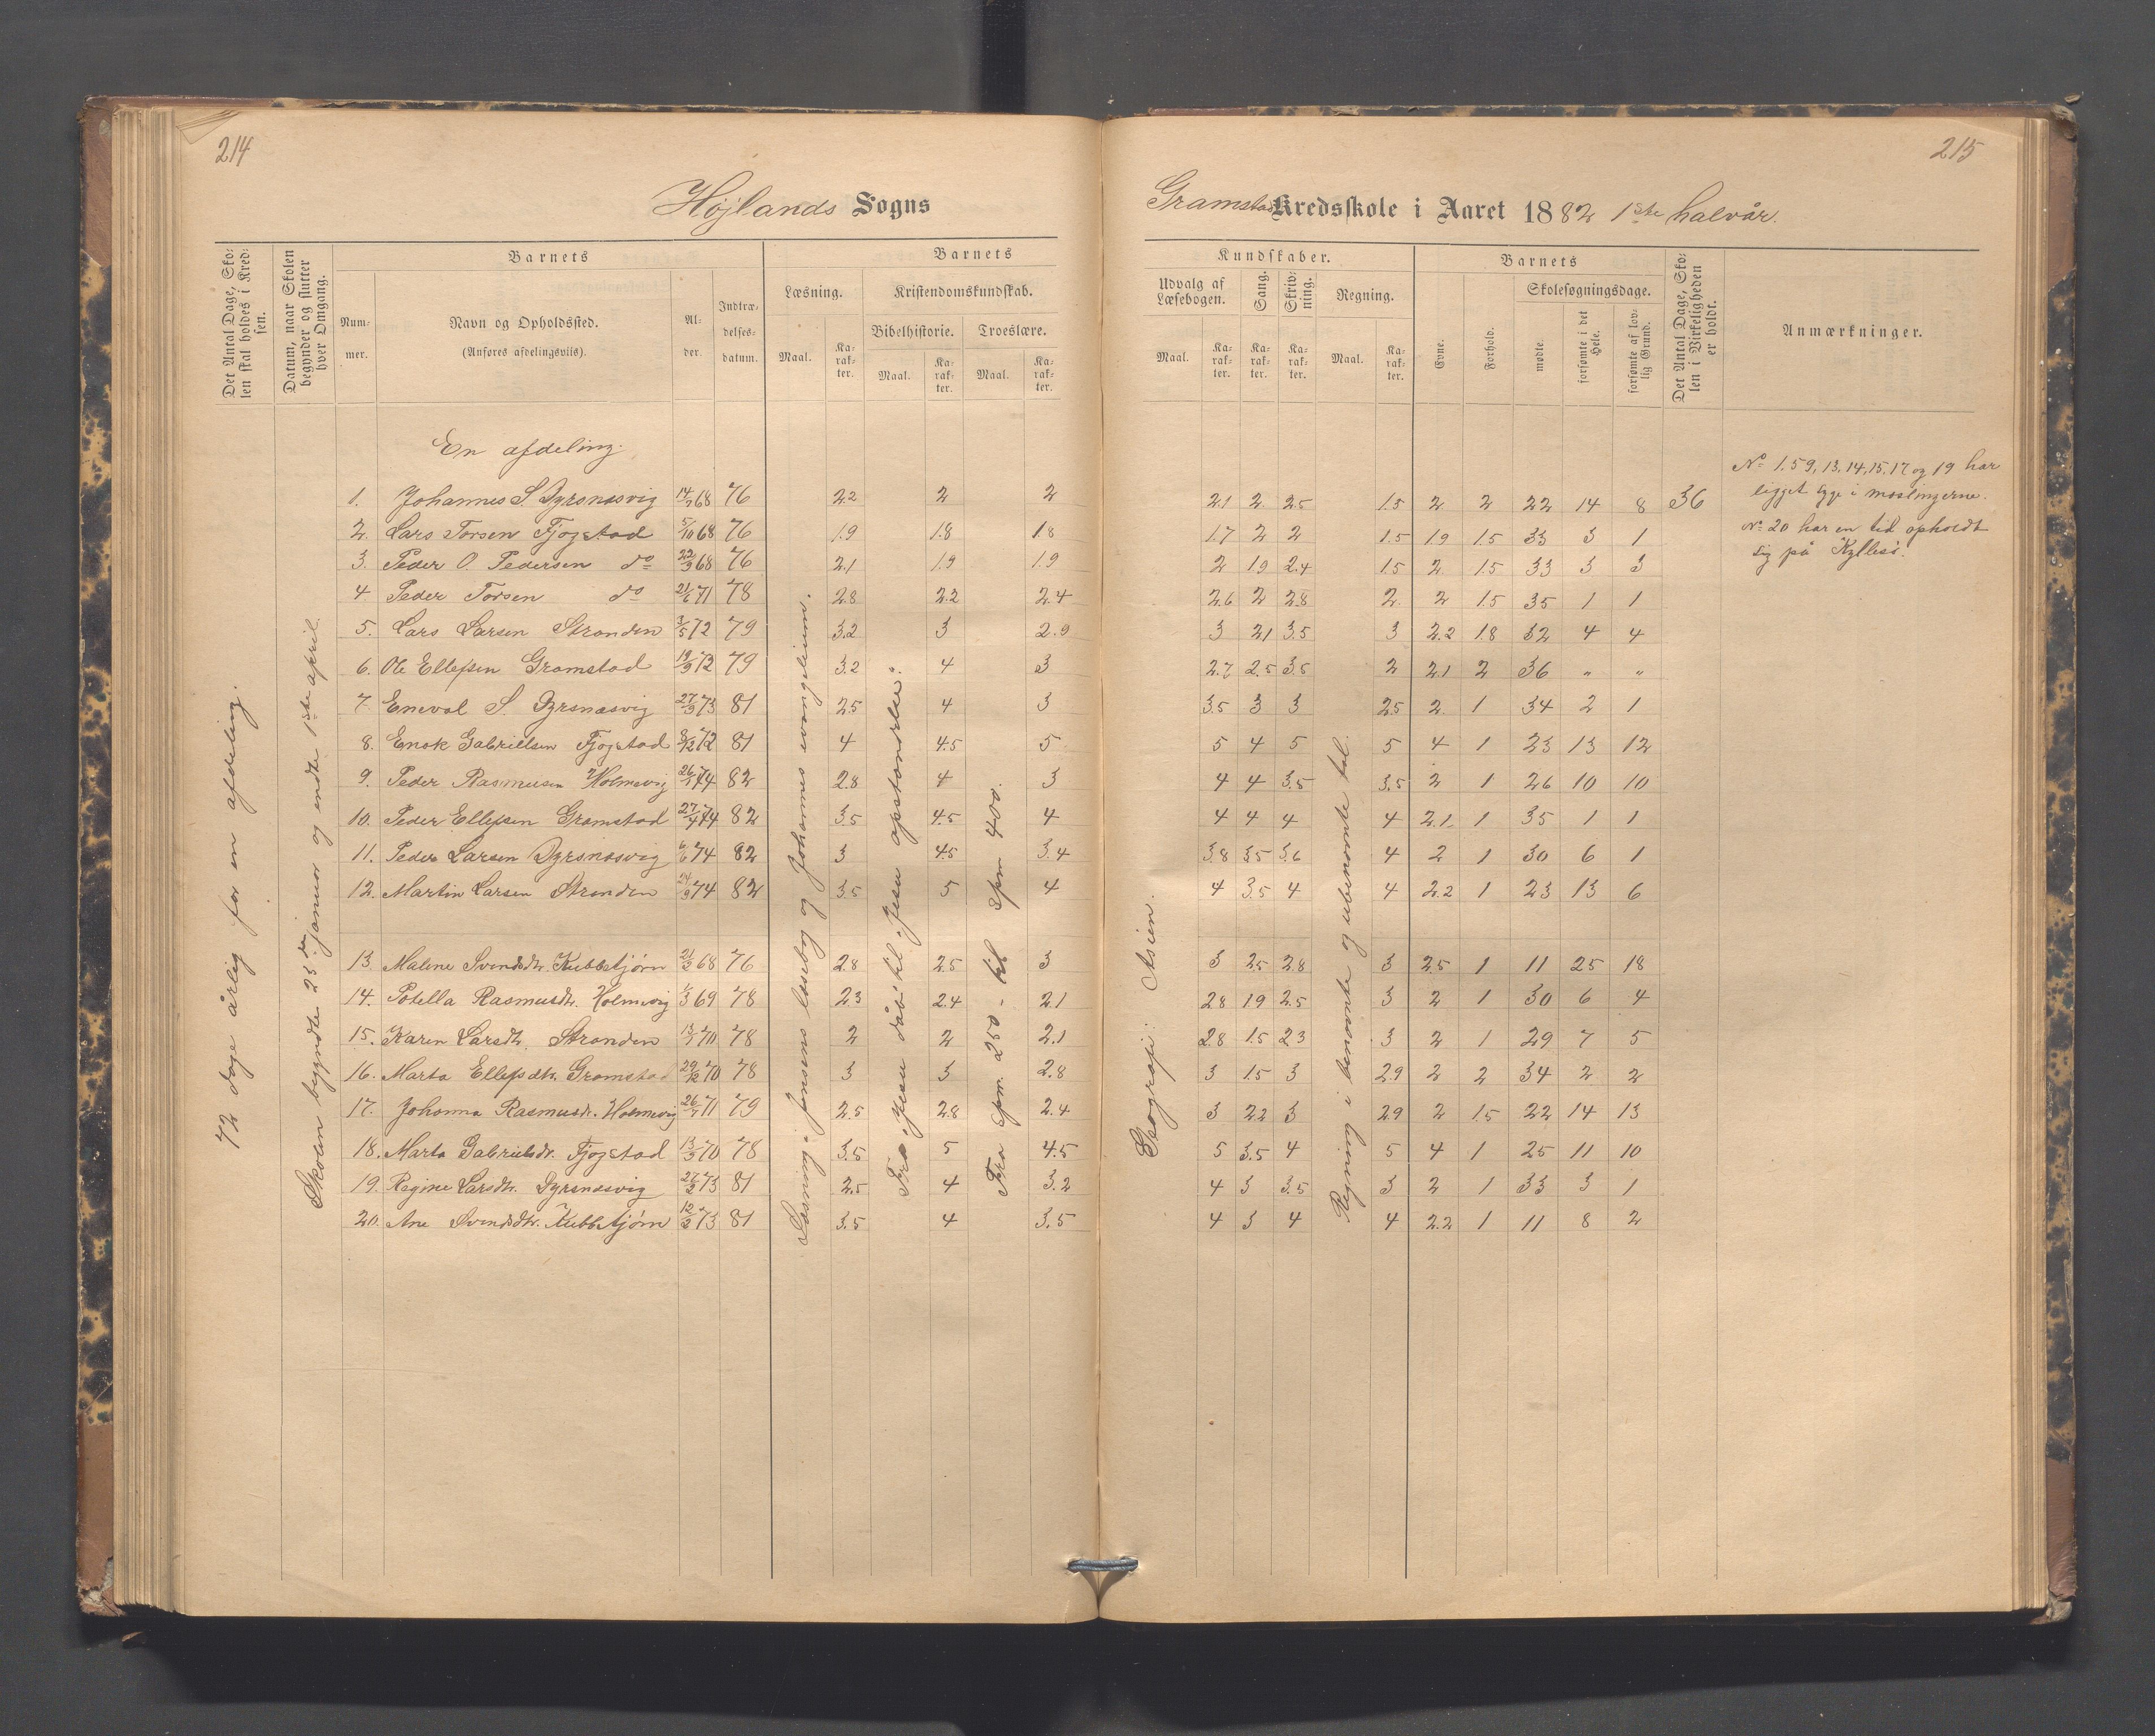 214
215
Højlands Sogns
Gramstad Kredsskole i Aaret 1882 1ste halvår.
Det Antal Dage, Skolen skal holdes i Kredsen.
Datum, naar Skolen begynder og slutter hver Omgang.
Barnets
Nummer.
Navn og Opholdssted.
(Anføres afdelingsviis).
Alder.
Indtrædelsesdatum.
Barnets
Læsning.
Kristendomskundskab.
Bibelhistorie.
Troeslære.
Maal.
Karakter.
Maal.
Karakter.
Maal.
Karakter.
Kundskaber.
Udvalg af Læsebogen.
Sang.
Skrivning.
Regning.
Maal.
Karakter.
Karakter.
Karakter.
Maal.
Karakter.
Barnets
Evne.
Forhold.
Skolesøgningsdage.
mødte.
forsømte i det Hele.
forsømte af lovlig Grund.
Det Antal Dage, Skolen i Virkeligheden er holdt.
Anmærkninger.
72 dage årlig for en afdeling.
Skolen begyndte 23de januar og endte 1ste april.
Læsning: Jensens læsebog og Johannes evangelium.
Fra "Jesu dåb" til "Jesu opstandelse".
Fra spm. 250 - til spm 400.
Geografi: Asien.
Regning i benævnte og ubenævnte tal.
En afdeling.
1. Johannes S. Dyrsnæsvig 14/7 68 76 2.2 2 2 2.1 2. 2.5 1.5 2 2 22 14 8 36
2. Lars Torsen Fjogstad 5/10 68 76 1.9 1.8 1.8 1.7 2 2 1.5 1.9 1.5 33 3 1
3. Peder O. Pedersen do 22/3 68 76 2.1 1.9 1.9 2 1.9 2.4 1.5 2 1.5 33 3 3
4 Peder Torsen do 21/6 71 78 2.8 2.2 2.4 2.6 2 2.8 2. 2 1.5 35 1 1
5. Lars Larsen Stranden 3/5 72 79 3.2 3 2.9 3 2.1 3.5 3 2.2 1.8 32 4 4
6. Ole Ellefsen Gramstad 19/9 72 79 3.2 4 3 2.7 2.5 3.5 2 2.1 2 36 " "
7. Eneval S. Dyrsnæsvig 27/3 73 81 2.5 4 3 3.5 3 3 2.5 2. 1 34 2 1
8. Enok Gabrielsen Fjogstad 8/12 72 81 4 4.5 5 5 4 5 5 4 1 23 13 12
9. Peder Rasmusen Holmevig 26/1 74 82 2.8 4 3 4 4 3.5 3.5 2 1 26 10 10
10. Peder Ellefsen Gramstad 27/4 74 82 3.5 4.5 4 4 4 4 4 2.1 1 35 1 1
11. Peder Larsen Dyrsnæsvig 6/6 74 82 3 4.5 3.4 3.8 3.5 3.6 4 2 1 30 6 1
12. Martin Larsen Stranden 24/9 74 82 3.5 5 4 4 3.5 4 4 2.2 1 23 13 6
13 Malene Svendsdtr. Kubbetjørn 21/2 68 76 2.8 2.5 3 3 2.5 2.8 3 2.5 1 11 25 18
14. Potella Rasmusdtr. Holmevig 1/3 69 78 2.3 2.4 2.1 2.8 1.9 2.5 3 2 1 30 6 4
15. Karen Larsdtr. Stranden 13/7 70 78 2 2 2.1 2.8 1.5 2.3 3 2 1 29 7 5
16. Marta Ellefsdtr. Gramstad 29/12 70 78 3 3 2.8 3 1.5 3 2.9 2 2 34 2 2
17. Johanna Rasmusdtr. Holmevig 26/7 71 79 2.5 2.8 2.4 3 2.2 3 2.9 2 1.5 22 14 13
18. Marta Gabrielsdtr. Fjogstad 13/3 70 78 3.5 5 4.5 5 3.5 4 5 4 1 25 11 10
19. Regine Larsdtr. Dyrsnæsvig 27/2 73 81 2.5 4 3.2 4 3 3.5 3 2 1 33 3 1
20. Ane Svendsdtr. Kubbetjørn 12/2 73 81 3.5 4 3.5 4 3 4 4 2.2 1 11 8 2
No 1.5 9, 13, 14, 15, 17 og 19 har
ligget syge i mæslingerne.
No 20 har en tid opholdt
sig på Kyllesø.